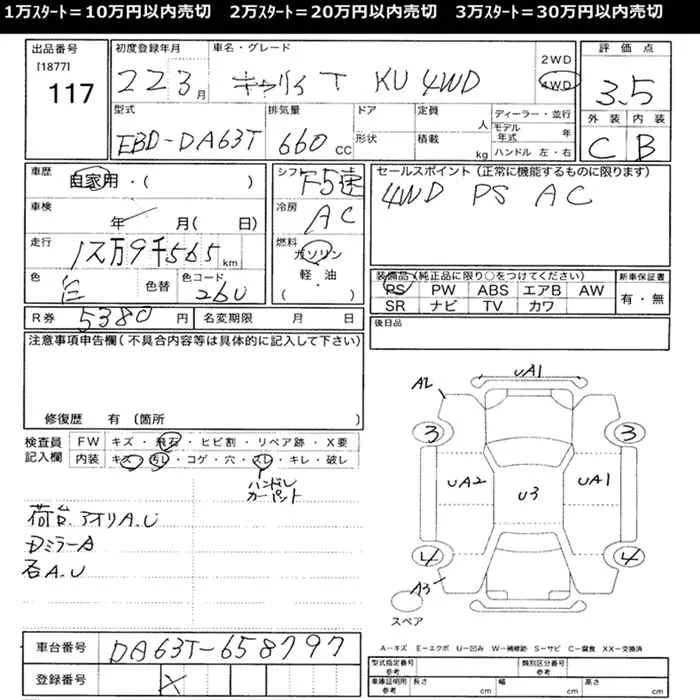 1万ｽﾀｰﾄ＝10万円以内売切　2万ｽﾀｰﾄ＝20万円以内売切　3万ｽﾀｰﾄ＝30万円以内売切
出品番号 初度登録年月 車名・グレード 評価点
[1877] 2WD
117 22 3月 キャリイ T KU 4WD 4WD 3.5
型式 排気量 ドア 定員 ディーラー・並行 外装 内装
人 モデル年式 年
EBD-DA63T 660cc 形状 積載 kg ハンドル 左・右 C B
車歴 シフト セールスポイント (正常に機能するものに限ります)
自家用・( ) F5速 4WD PS AC
車検 冷房
年 月( 日) AC
走行 燃料
1万9千565km ガソリン
色 色替 色コード 軽・油 装備品 (純正品に限り○をつけてください) 新車保証書
白 26U ( ) PS PW ABS エアB AW 有・無
SR ナビ TV カワ
R券 5380円 名変期限 月 日 後日品
注意事項申告欄 (不具合内容等は具体的に記入して下さい)
修復歴 有 (箇所 )
検査員記入欄 FW キズ・飛石・ヒビ割・リペア跡・X要
内装 キズ・汚レ・コゲ・穴・スレ・キレ・破レ
ハンドル
カーペット
荷台、アオリA.U
Dミラー A
石A.U
UA1
A2
3 3
UA2 U3 UA1
4 4
A3
スペア
車台番号 DA63T-658797
登録番号 X
A－キズ E－エクボ U－凹み W－補修跡 S－サビ C－腐食 XX－交換済
型式指定番号 参考 類別区分番号 参考
車庫証明用 参考 長さ cm 幅 cm 高さ cm